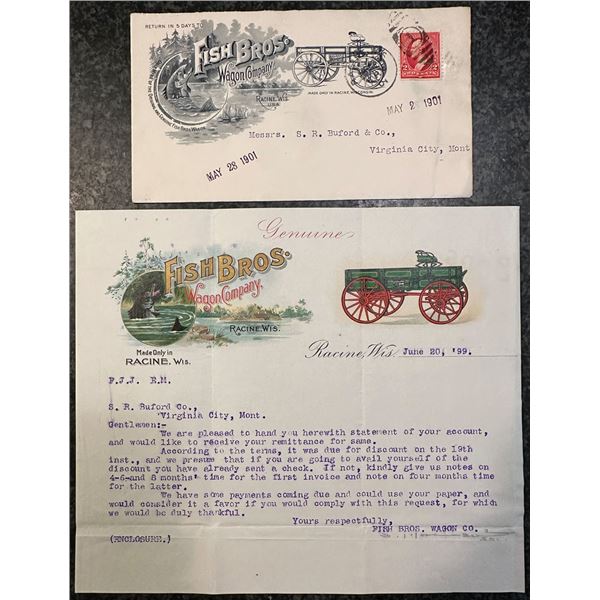 RETURN IN 5 DAYS TO
FISH BROS.
Wagon Company,
RACINE, WIS.
U.S.A.
MADE ONLY IN RACINE, WISCONSIN.
MAY 2 1901
Messrs. S. R. Buford & Co.,
Virginia City, Mont
MAY 28 1901
Genuine
FISH BROS.
Wagon Company,
RACINE, WIS.
Made Only in
RACINE, WIS.
Racine, Wis. June 20, '99.
F.J.J. E.M.
S. R. Buford Co.,
Virginia City, Mont.
Gentlemen:-
We are pleased to hand you herewith statement of your account,
and would like to receive your remittance for same.
According to the terms, it was due for discount on the 19th
inst., and we presume that if you are going to avail yourself of the
discount you have already sent a check. If not, kindly give us notes on
4-6-and 8 months' time for the first invoice and note on four months time
for the latter.
We have some payments coming due and could use your paper, and
would consider it a favor if you would comply with this request, for which
we would be duly thankful.
Yours respectfully,
FISH BROS. WAGON CO.
(ENCLOSURE.)